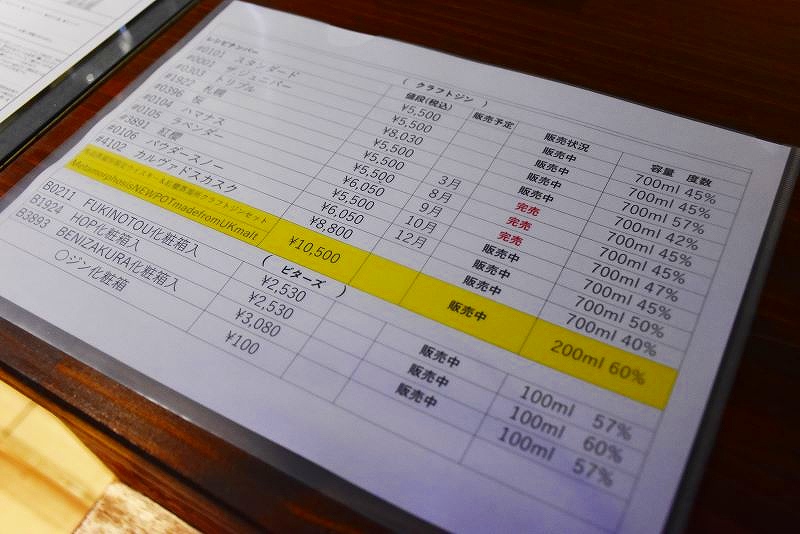 レシピナンバー ( クラフトジン ) 値段(税込) 販売予定 販売状況 容量 度数
#0101 スタンダード ¥5,500 販売中 700ml 45%
#0001 ザジュニパー ¥5,500 販売中 700ml 45%
#0303 トリプル ¥8,030 販売中 700ml 57%
#1922 札幌 ¥5,500 販売中 700ml 42%
#0396 桜 ¥5,500 3月 完売 700ml 45%
#0104 ハマナス ¥5,500 8月 完売 700ml 45%
#0105 ラベンダー ¥6,050 9月 完売 700ml 47%
#3891 紅櫻 ¥5,500 10月 販売中 700ml 45%
#0106 パウダースノー ¥6,050 12月 販売中 700ml 50%
#4102 カルヴァドスカスク ¥8,800 販売中 700ml 40%
MetamorphosisNEWPOTmadefromUKmalt ¥10,500 販売中 200ml 60%
( ビターズ )
B0211 FUKINOTOU化粧箱入 ¥2,530 販売中 100ml 57%
B1924 HOP化粧箱入 ¥2,530 販売中 100ml 60%
B3893 BENIZAKURA化粧箱入 ¥3,080 販売中 100ml 57%
〇ジン化粧箱 ¥100